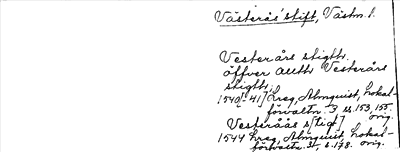 Västerås stift, Västm. l.
Vesterårs stigtt.
öffver alltt Vesterårs
stigtt,
1540[-41] Hreg, Almquist, Lokal-
förvaltn. 3 s. 153, 155.
orig.
Vesteråås s[tigt]
1544 Hreg, Almquist, Lokal-
förvaltn. 3, s. 178. orig.